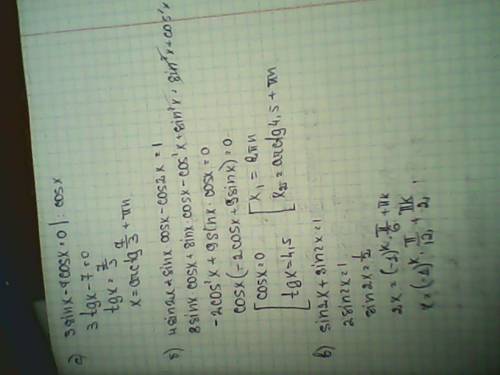 а) 3sinx-7cosx=0 |:cosx
3tgx-7=0
tgx=7/3
x=arctg 7/3+πn.
б) 4sin2x+sinx cosx-cos2x=1
8sinx cosx+sinx·cosx-cos²x+sin²x=sin²x+cos²x
-2cos²x+9sinx·cosx=0
cosx(-2cosx+9sinx)=0
[cosx=0 [x₁=2πn
[tgx=4,5 [x₂=arctg4,5+πn
в) sin2x+sin2x=1
2sin2x=1
sin2x=1/2
2x=(-1)ᵏ·π/6+πk
x=(-1)ᵏ·π/12+πk/2